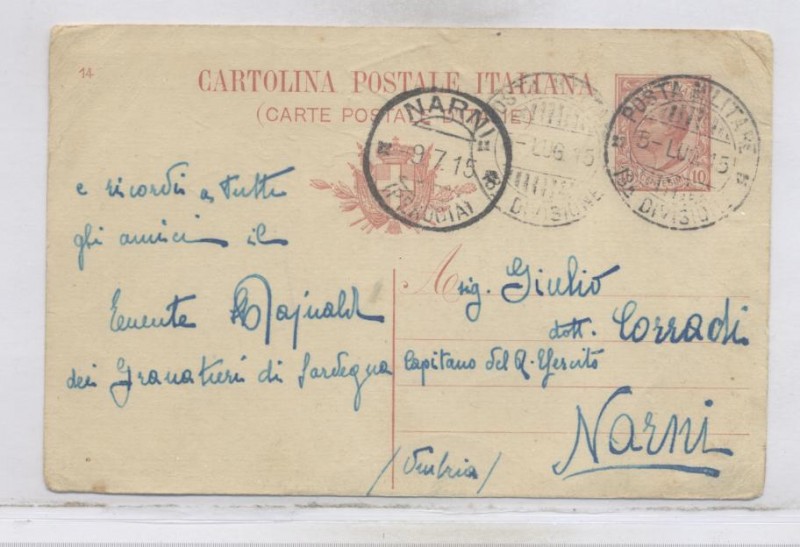 14
CARTOLINA POSTALE ITALIANA
(CARTE POSTALE D'ITALIE)
NARNI
9.7.15
(PERUGIA)
-LUG 15
DIVISIONE
POSTA MILITARE
-LUG 15
DIVISIO
10
e ricordi a tutti
gli amici il
Tenente
dei Granatieri di Sardegna
A sig. Giulio
dott. Corradi
Capitano del R. Esercito
Narni
(Umbria)